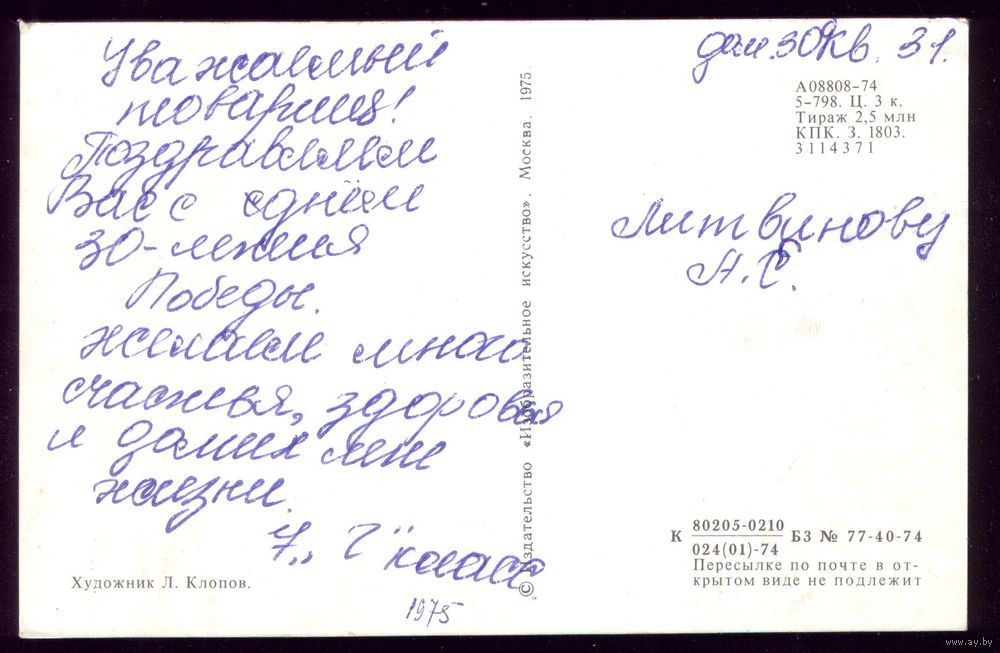 Уважаемый
товарищ!
Поздравляем
Вас с днём
30-летия
Победы.
желаем много
счастья, здоровья
и долгих лет
жизни.
7 „Г" класс
Художник Л. Клопов.
1975
© Издательство «Изобразительное искусство». Москва. 1975.
дом. 30 кв. 31.
А08808-74
5-798. Ц. 3 к.
Тираж 2,5 млн
КПК. З. 1803.
3114371
Литвинову
А. С.
К 80205-0210 БЗ № 77-40-74
024(01)-74
Пересылке по почте в от-
крытом виде не подлежит
www.ay.by